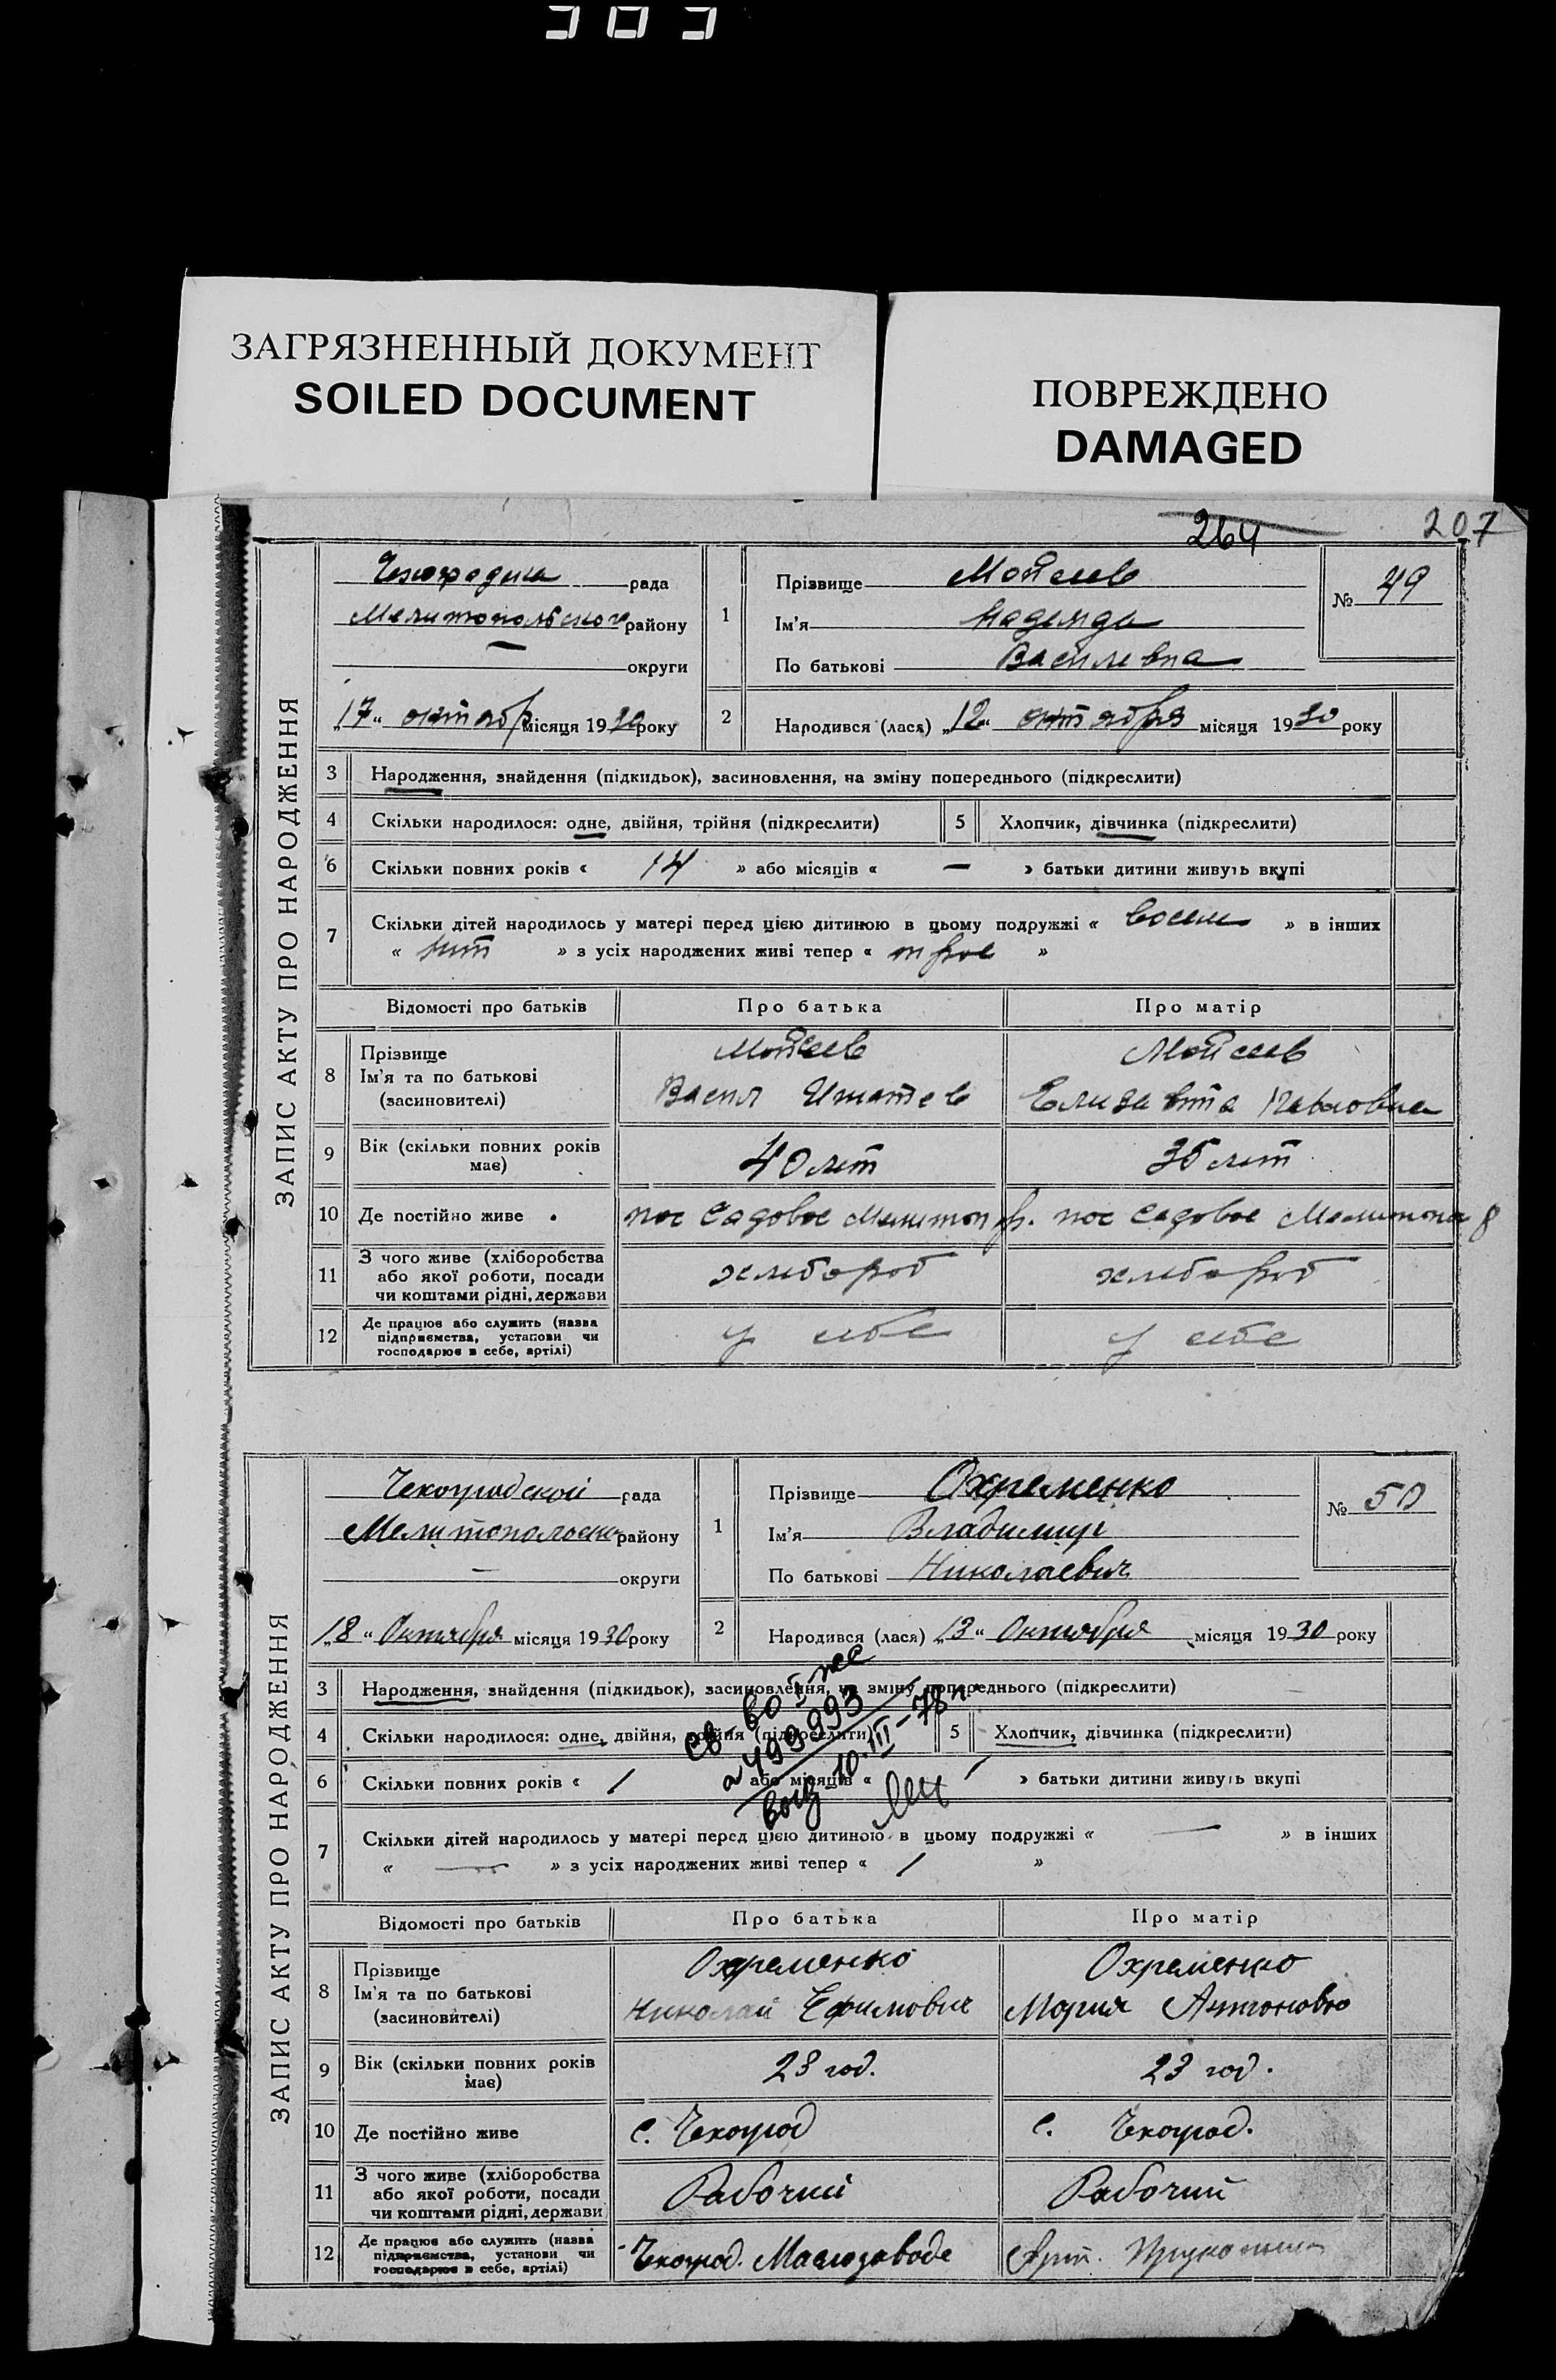 303
ЗАГРЯЗНЕННЫЙ ДОКУМЕНТ
SOILED DOCUMENT
ПОВРЕЖДЕНО
DAMAGED
264
207
ЗАПИС АКТУ ПРО НАРОДЖЕННЯ
рада
Мелитопольского району
— округи
„17“ октябр місяця 1930 року
1
Прізвище Мойсеев
Ім'я Надежда
По батькові Василевна
№ 49
2 Народився (лася) „12“ октября місяця 1930 року
3 Народження, знайдення (підкидьок), засиновлення, на зміну попереднього (підкреслити)
4 Скільки народилося: одне, двійня, трійня (підкреслити)
5 Хлопчик, дівчинка (підкреслити)
6 Скільки повних років « 14 » або місяців « — » батьки дитини живуть вкупі
7 Скільки дітей народилось у матері перед цією дитиною в цьому подружжі « восем » в інших
« нит » з усіх народжених живі тепер « трое »
Відомості про батьків Про батька Про матір
8 Прізвище Мойсеев Мойсеев
Ім'я та по батькові Васил Игнатев Елизавта Павловна
(засиновителі)
9 Вік (скільки повних років має) 40 лет 35 лет
10 Де постійно живе пос Садовое Мелитоп р. пос Садовое Мелитопол р
11 З чого живе (хліборобства або якої роботи, посади чи коштами рідні, держави хлебороб хлебороб
12 Де працює або служить (назва підприємства, установи чи господарює в себе, артілі) у себе у себе
ЗАПИС АКТУ ПРО НАРОДЖЕННЯ
Чехоградской рада
Мелитопольско району
— округи
„18“ Октября місяця 1930 року
1
Прізвище Охременко
Ім'я Владимир
По батькові Николаевич
№ 50
2 Народився (лася) „13“ Октября місяця 1930 року
3 Народження, знайдення (підкидьок), засиновлення, на зміну попереднього (підкреслити)
4 Скільки народилося: одне, двійня, трійня (підкреслити)
5 Хлопчик, дівчинка (підкреслити)
6 Скільки повних років « 1 » або місяців « » батьки дитини живуть вкупі
7 Скільки дітей народилось у матері перед цією дитиною в цьому подружжі « — » в інших
« — » з усіх народжених живі тепер « 1 »
Св-во
499993
выд 10.III-78 г.
Відомості про батьків Про батька Про матір
8 Прізвище Охременко Охременко
Ім'я та по батькові Николай Ефимович Мария Антоновна
(засиновителі)
9 Вік (скільки повних років має) 28 год. 23 год.
10 Де постійно живе с. Чехоград с. Чехоград.
11 З чого живе (хліборобства або якої роботи, посади чи коштами рідні, держави Рабочий Рабочий
12 Де працює або служить (назва підприємства, установи чи господарює в себе, артілі) Чехоград. Маслозаводе Арт.